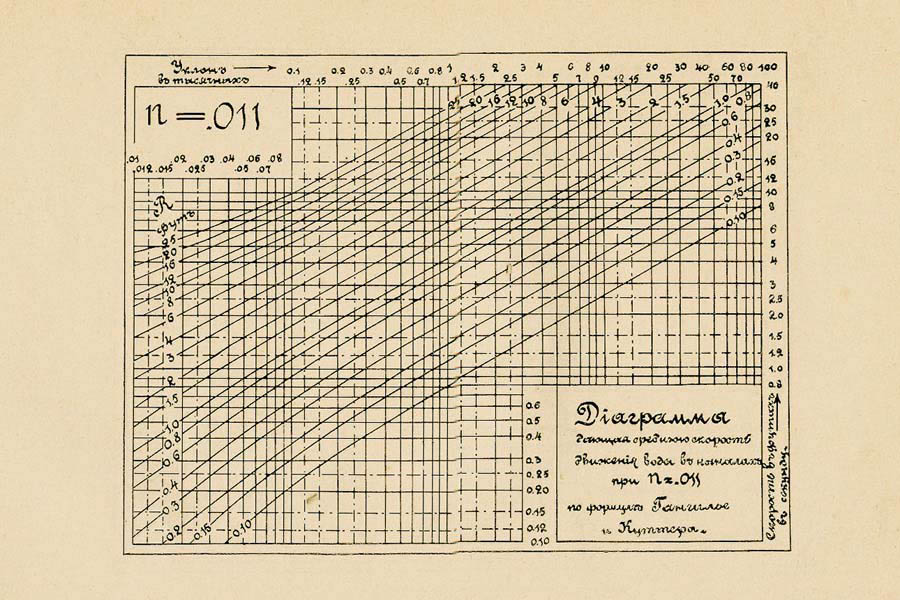 Уклонъ
въ тысячныхъ
0.1 0.2 0.3 0.4 0.6 0.8 1 2 3 4 6 8 10 20 30 40 60 80 100
.12 .15 .25 0.5 0.7 1.2 1.5 2.5 5 7 9 12 15 25 50 70
n = .011
25 20 16 12 10 8 6 4 3 2 1.5 1.0 0.8
0.6
0.4
0.3
0.2
0.15
0.10
.01 .02 .03 .04 .06 .08
.012 .015 .025 .05 .07
R
футъ
25
20
16
12
10
8
6
4
3
2
1.5
1.0
0.8
0.6
0.4
0.3
0.2 0.15 0.10
40
30
25
20
16
12
10
8
6
5
4
3
2.5
2.0
1.5
1.2
1.0
0.8
0.6
0.5
0.4
0.3
0.25
0.20
0.15
0.12
0.10
Діаграмма
дающая среднюю скорость
движенія воды въ каналахъ
при n = .011
по формулѣ Гангилье
и Куттера.
Скорость